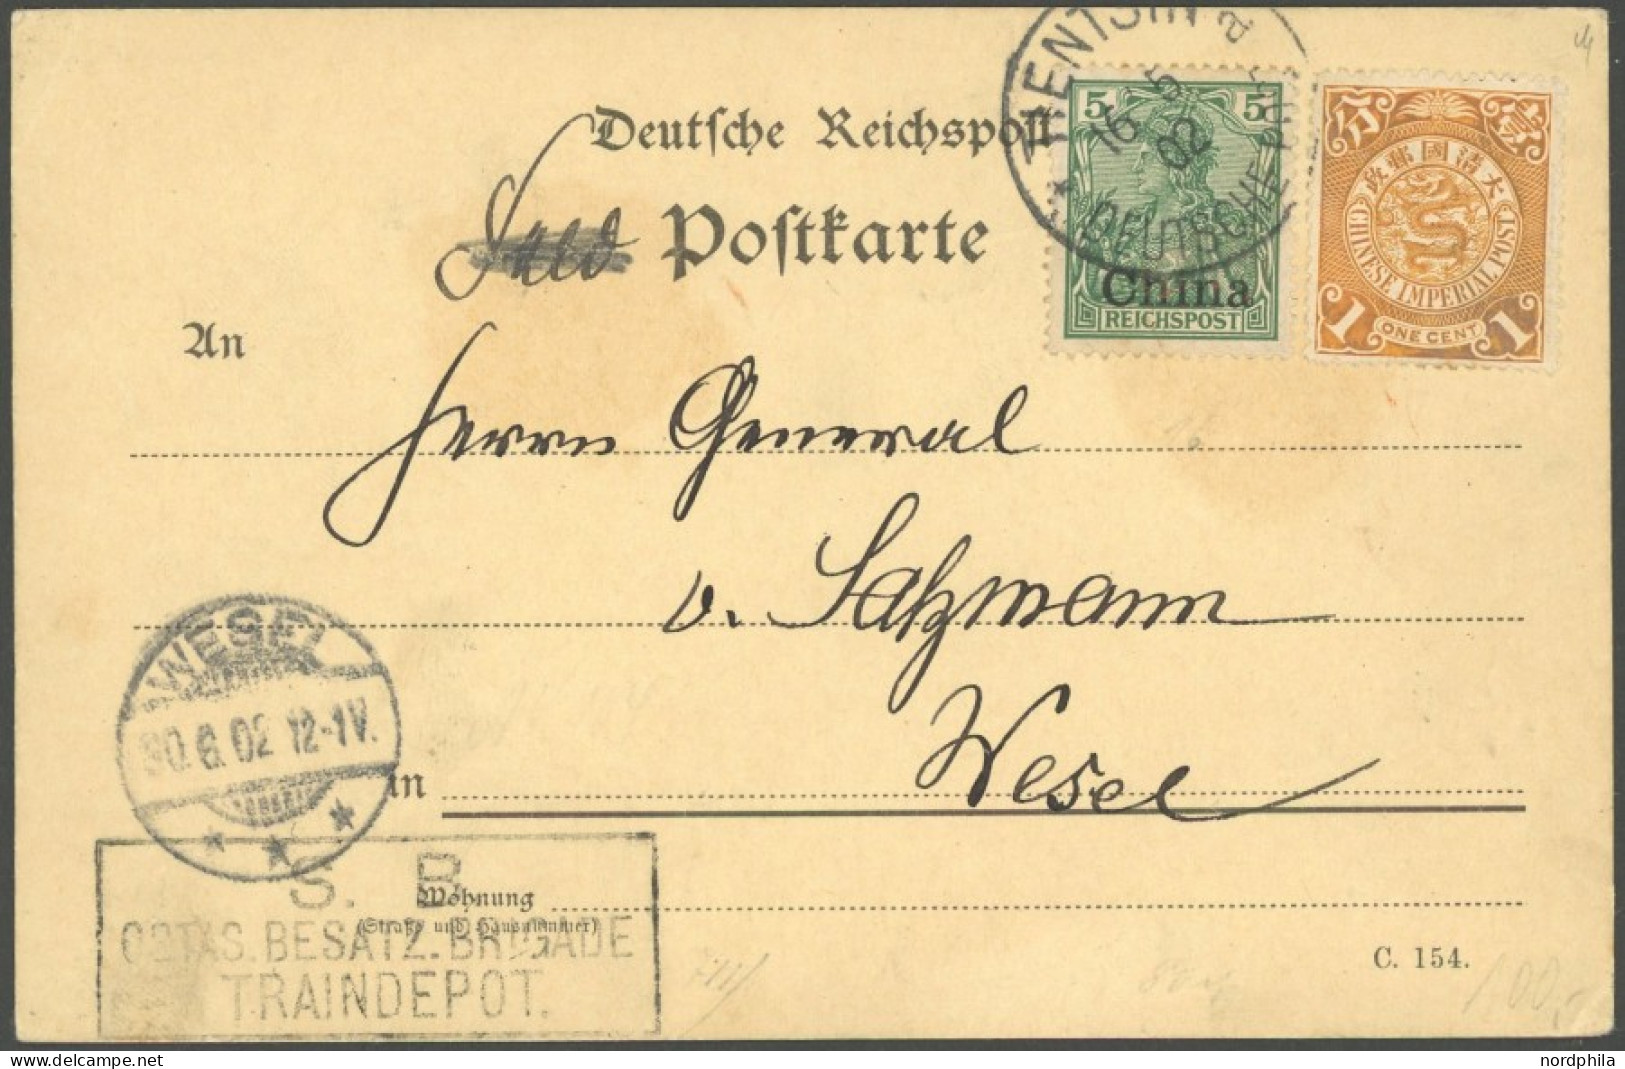 TIENTSIN a
16 5 02
DEUTSCHE POST
Deutsche Reichspost
Feld Postkarte
5 5
China
REICHSPOST
分 壹
大清國郵政
CHINESE IMPERIAL POST
1 ONE CENT 1
An
Herrn General
v. Salzmann
Wesel
WESEL
30.6.02 12-1V.
* * *
in
S. B.
Wohnung
(Straße und Hausnummer)
OSTAS. BESATZ. BRIGADE
TRAINDEPOT.
C. 154.
100,-
nordphila